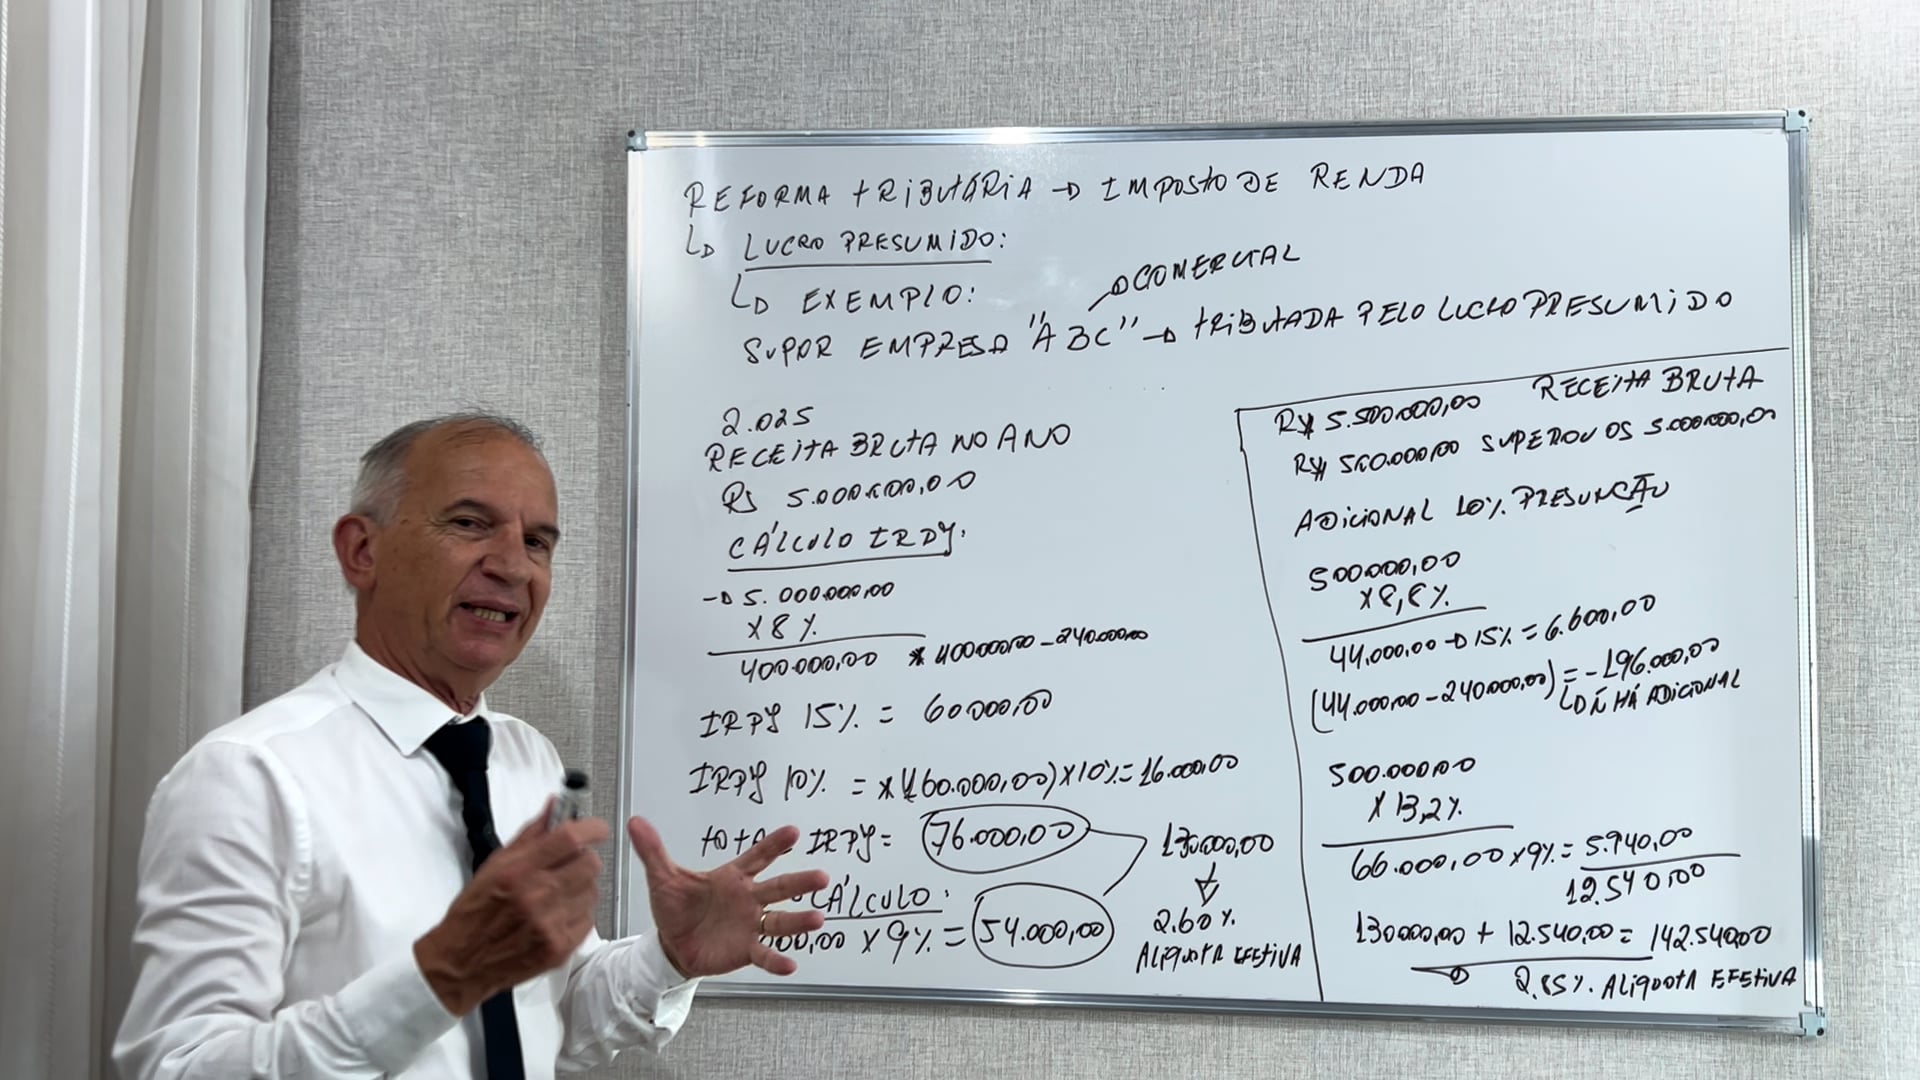 REFORMA TRIBUTÁRIA → IMPOSTO DE RENDA
↳ LUCRO PRESUMIDO:
↳ EXEMPLO:
→ COMERCIAL
SUPOR EMPRESA "ABC" → TRIBUTADA PELO LUCRO PRESUMIDO
2.025
RECEITA BRUTA NO ANO
R$ 5.000.000,00
CÁLCULO IRPJ:
→ 5.000.000,00
X 8%
400.000,00 * 400.000,00 - 240.000,00
IRPJ 15% = 60.000,00
IRPJ 10% = * (160.000,00) X 10% = 16.000,00
IRPJ = 76.000,00
CÁLCULO:
000,00 X 9% = 54.000,00
130.000,00
2.60%
ALIQUOTA EFETIVA
RECEITA BRUTA
R$ 5.500.000,00
R$ 500.000,00 SUPEROU OS 5.000.000,00
ADICIONAL 10% PRESUNÇÃO
500.000,00
X 8,8%
44.000,00 → 15% = 6.600,00
(44.000,00 - 240.000,00) = - 196.000,00
↳ Ñ HÁ ADICIONAL
500.000,00
X 13,2%
66.000,00 X 9% = 5.940,00
12.540,00
130.000,00 + 12.540,00 = 142.540,00
→ 2.85% ALIQUOTA EFETIVA